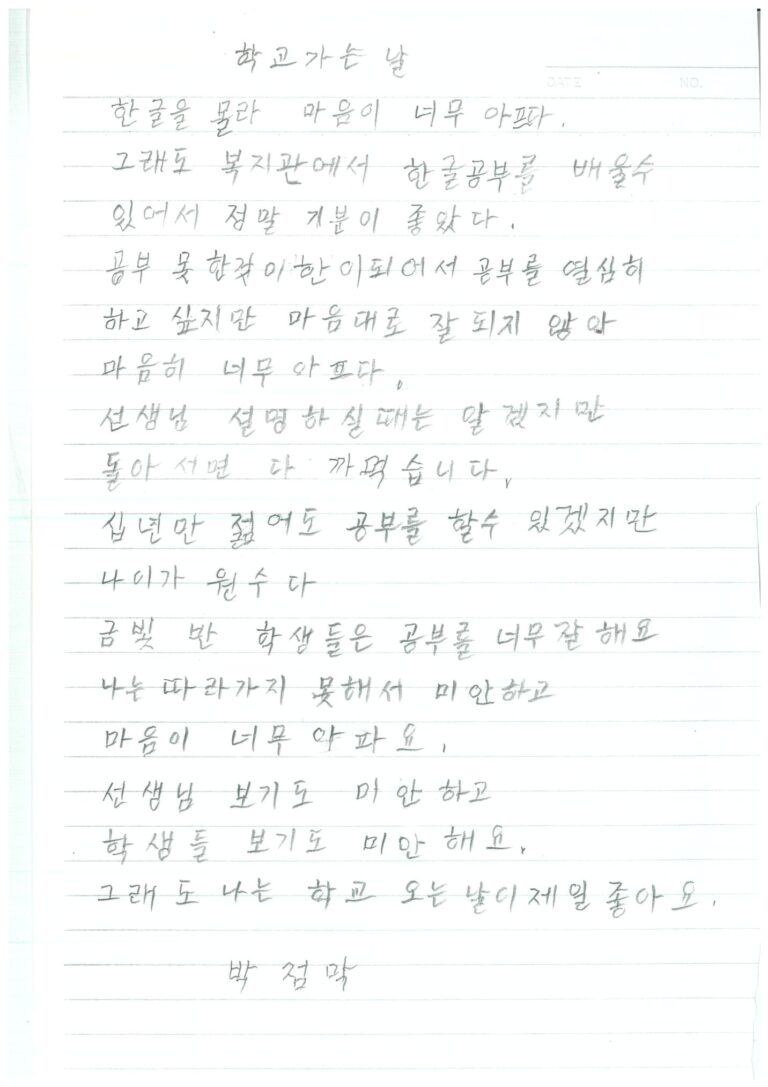 학교가는 날
DATE NO.
한글을 몰라 마음이 너무 아프다.
그래도 복지관에서 한글공부를 배울수
있어서 정말 기분이 좋았다.
공부 못 한것이 한이되어서 공부를 열심히
하고 싶지만 마음대로 잘 되지 않아
마음히 너무 아프다.
선생님 설명하실때는 알겠지만
돌아서면 다 까먹습니다.
십년만 젊어도 공부를 할수 있겠지만
나이가 원수다
금빛 반 학생들은 공부를 너무잘해요
나는 따라가지 못해서 미안하고
마음이 너무 아파요.
선생님 보기도 미안하고
학생들 보기도 미안해요.
그래도 나는 학교 오는 날이 제일 좋아요.
박점막